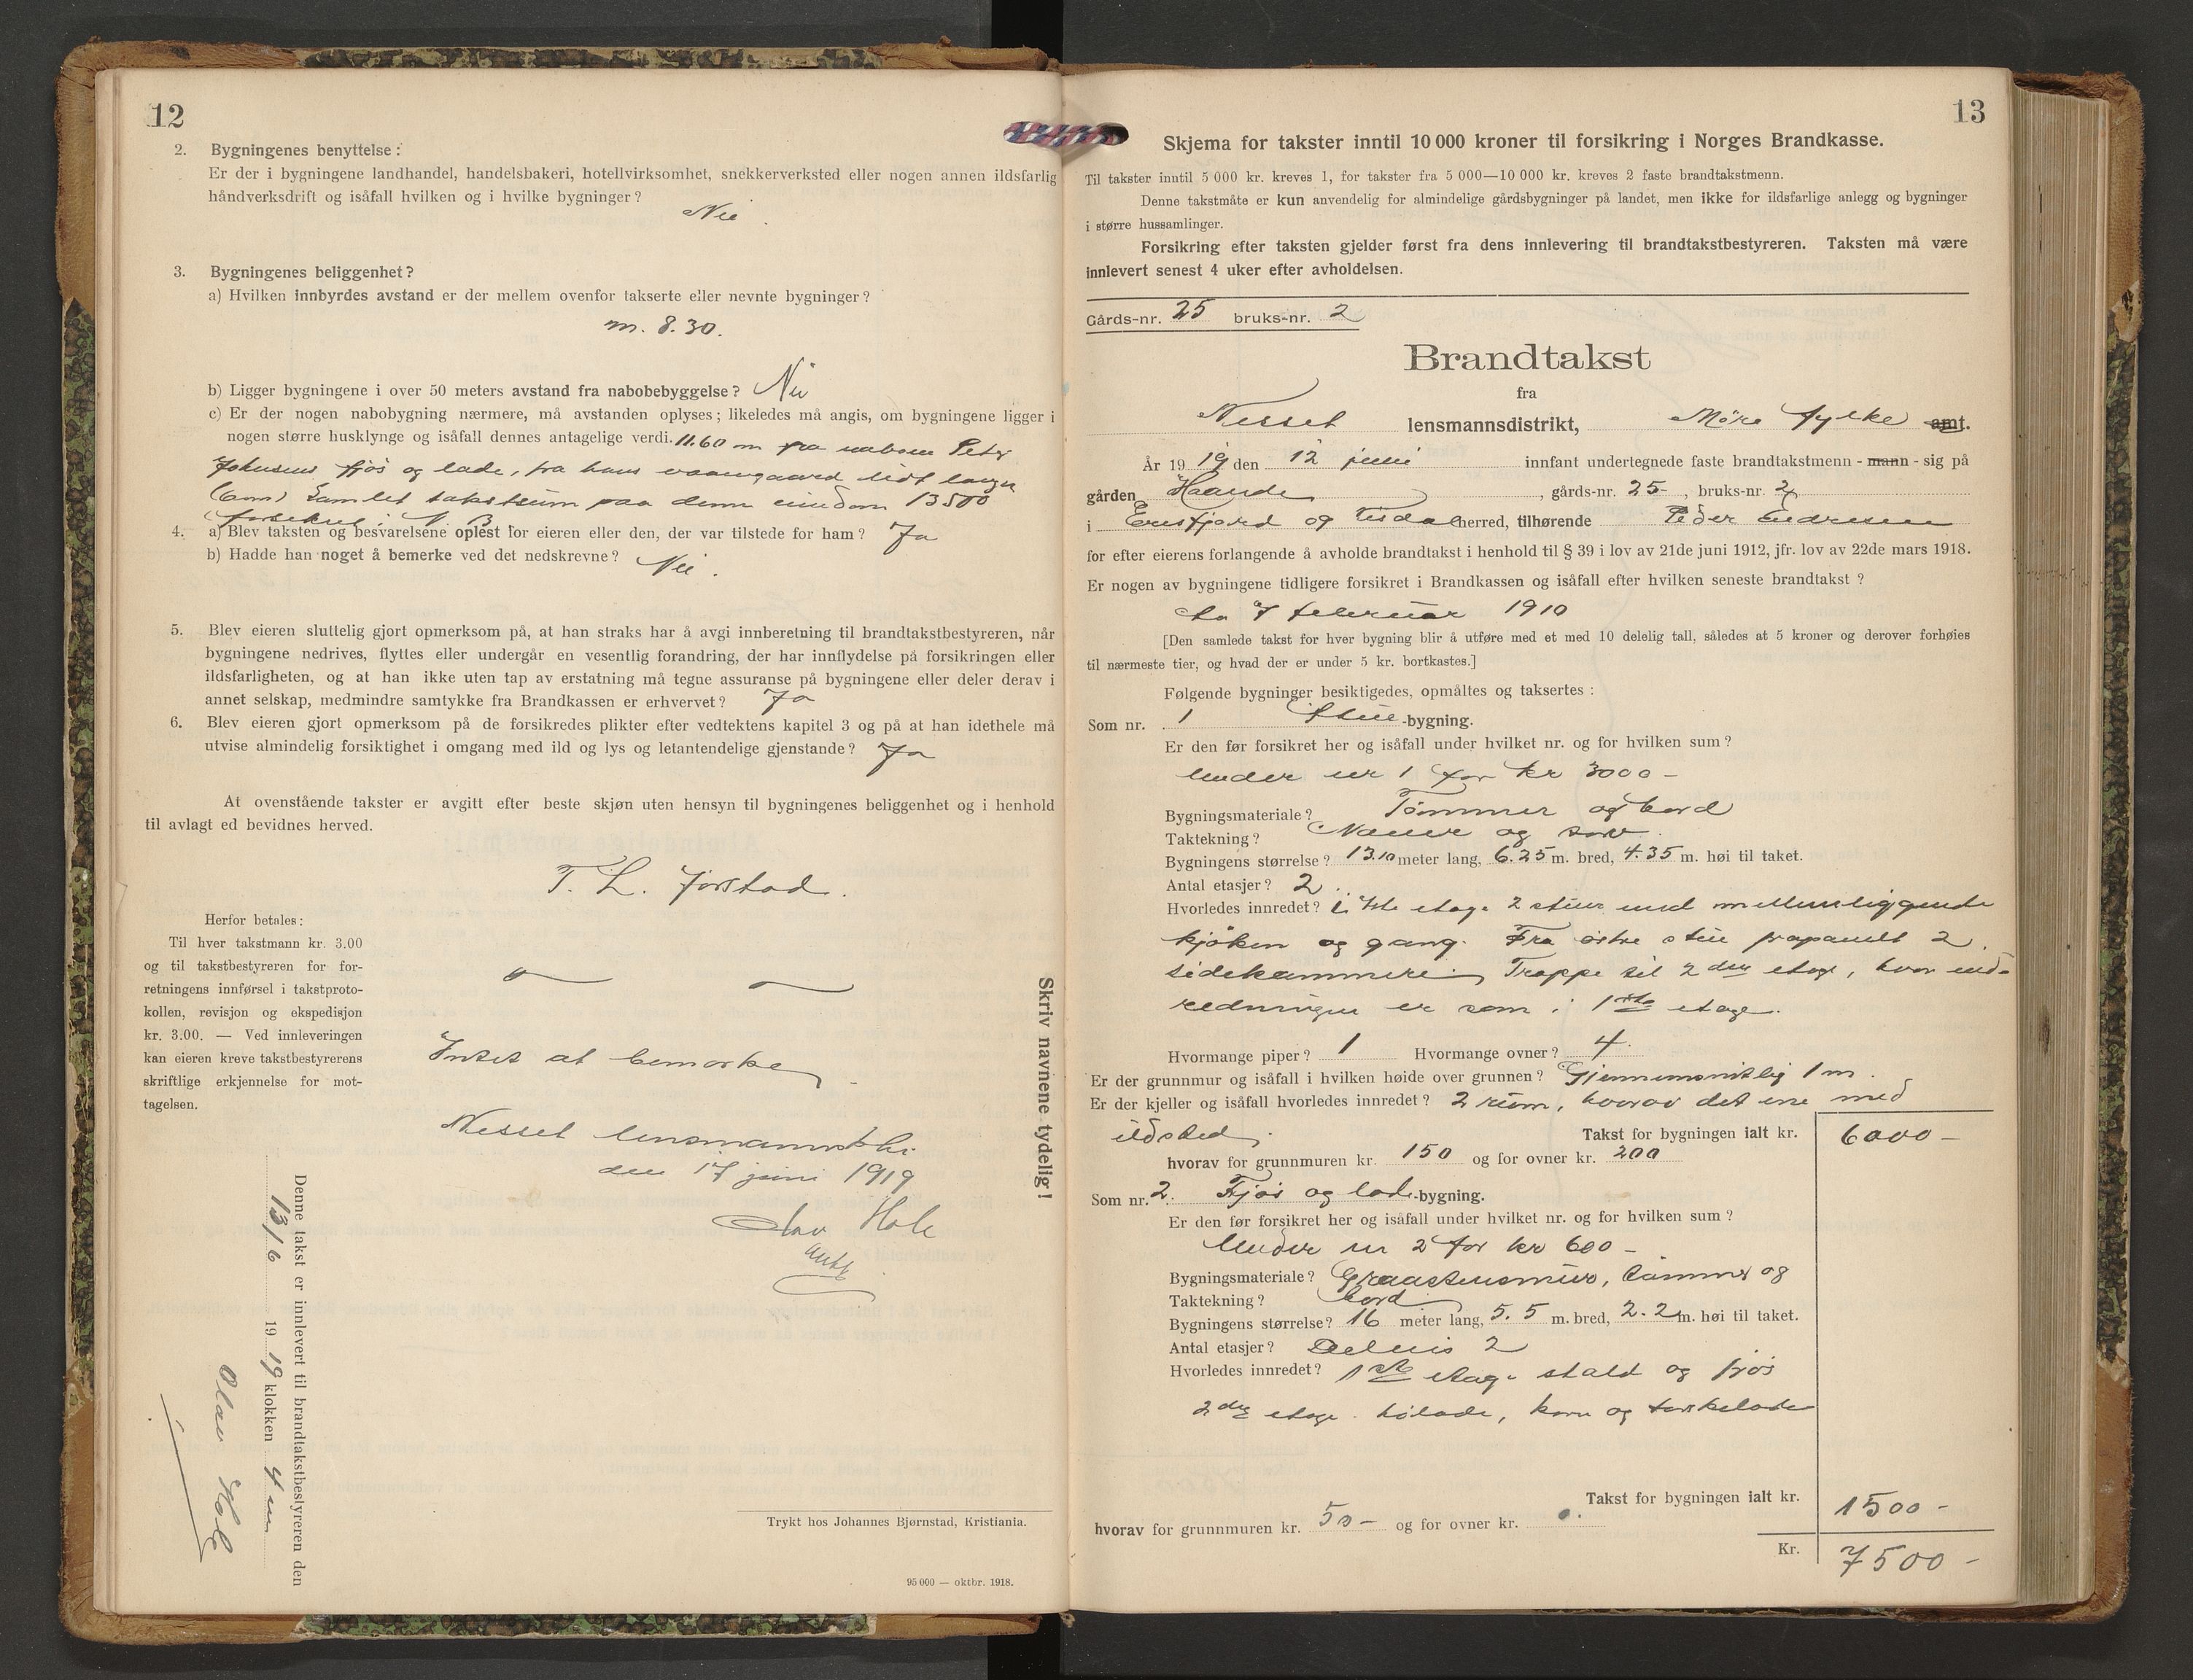 12
2. Bygningenes benyttelse:
Er der i bygningene landhandel, handelsbakeri, hotellvirksomhet, snekkerverksted eller nogen annen ildsfarlig
håndverksdrift og isåfall hvilken og i hvilke bygninger?
Nei.
3. Bygningenes beliggenhet?
a) Hvilken innbyrdes avstand er der mellem ovenfor takserte eller nevnte bygninger?
m. 8.30.
b) Ligger bygningene i over 50 meters avstand fra nabobebyggelse? Nei
c) Er der nogen nabobygning nærmere, må avstanden oplyses; likeledes må angis, om bygningene ligger i
nogen større husklynge og isåfall dennes antagelige verdi. 11.60 m fra naboen Peter
Johnsens fjøs og lade, fra hans vaaningaard lidt længer
Samlet takstsum paa denne eiendom 13500
forsikret i N. B.
4. a) Blev taksten og besvarelsene oplest for eieren eller den, der var tilstede for ham? Ja
b) Hadde han noget å bemerke ved det nedskrevne? Nei.
5. Blev eieren sluttelig gjort opmerksom på, at han straks har å avgi innberetning til brandtakstbestyreren, når
bygningene nedrives, flyttes eller undergår en vesentlig forandring, der har innflydelse på forsikringen eller
ildsfarligheten, og at han ikke uten tap av erstatning må tegne assuranse på bygningene eller deler derav i
annet selskap, medmindre samtykke fra Brandkassen er erhvervet? Ja
6. Blev eieren gjort opmerksom på de forsikredes plikter efter vedtektens kapitel 3 og på at han idethele må
utvise almindelig forsiktighet i omgang med ild og lys og letantendelige gjenstande? Ja
At ovenstående takster er avgitt efter beste skjøn uten hensyn til bygningenes beliggenhet og i henhold
til avlagt ed bevidnes herved.
T. L. Jørstad.
Herfor betales:
Til hver takstmann kr. 3.00
og til takstbestyreren for for-
retningens innførsel i takstproto-
kollen, revisjon og ekspedisjon
kr. 3.00. — Ved innleveringen
kan eieren kreve takstbestyrerens
skriftlige erkjennelse for mot-
tagelsen.
Intet at bemerke
Nesset lensmannsbk.
den 17 juni 1919
Olav Hole
Skriv navnene tydelig!
Denne takst er innlevert til brandtakstbestyreren den
13/6 1919 klokken 4 em
Olav Hole
Trykt hos Johannes Bjørnstad, Kristiania.
95 000 — oktbr. 1918.
13
Skjema for takster inntil 10 000 kroner til forsikring i Norges Brandkasse.
Til takster inntil 5 000 kr. kreves 1, for takster fra 5 000—10 000 kr. kreves 2 faste brandtakstmenn.
Denne takstmåte er kun anvendelig for almindelige gårdsbygninger på landet, men ikke for ildsfarlige anlegg og bygninger
i større hussamlinger.
Forsikring efter taksten gjelder først fra dens innlevering til brandtakstbestyreren. Taksten må være
innlevert senest 4 uker efter avholdelsen.
Gårds-nr. 25 bruks-nr. 2
Brandtakst
fra
Nesset lensmannsdistrikt, Møre fylke amt.
År 1919 den 12 juni innfant undertegnede faste brandtakstmenn - mann - sig på
gården Haande, gårds-nr. 25, bruks-nr. 2,
i Eresfjord og Visdal herred, tilhørende Peder Endresen
for efter eierens forlangende å avholde brandtakst i henhold til § 39 i lov av 21de juni 1912, jfr. lov av 22de mars 1918.
Er nogen av bygningene tidligere forsikret i Brandkassen og isåfall efter hvilken seneste brandtakst?
Ja 7 februar 1910
[Den samlede takst for hver bygning blir å utføre med et med 10 delelig tall, således at 5 kroner og derover forhøies
til nærmeste tier, og hvad der er under 5 kr. bortkastes.]
Følgende bygninger besiktigedes, opmåltes og taksertes:
Som nr. 1 Stue-bygning.
Er den før forsikret her og isåfall under hvilket nr. og for hvilken sum?
Under nr 1 for kr 3000 -
Bygningsmateriale? Tømmer og bord
Taktekning? Næver og torv
Bygningens størrelse? 13.10 meter lang, 6.25 m. bred, 4.35 m. høi til taket.
Antal etasjer? 2.
Hvorledes innredet? i 1ste etage 2 stuer med mellemliggende
kjøken og gang. Fra østre stue frapanelt 2
sidekammere, Trappe til 2den etage, hvor ind-
redningen er som i 1ste etage.
Hvormange piper? 1 Hvormange ovner? 4.
Er der grunnmur og isåfall i hvilken høide over grunnen? Gjennemsnitlig 1 m.
Er der kjeller og isåfall hvorledes innredet? 2 rum, hvorav det ene med
ildsted. Takst for bygningen ialt kr. 6000 -
hvorav for grunnmuren kr. 150 og for ovner kr. 200
Som nr. 2. Fjøs og lade-bygning.
Er den før forsikret her og isåfall under hvilket nr. og for hvilken sum?
Under nr 2 for kr 600 -
Bygningsmateriale? Graastensmur, tømmer og
Taktekning? bord
Bygningens størrelse? 16 meter lang, 5.5 m. bred, 2.2 m. høi til taket.
Antal etasjer? Delvis 2
Hvorledes innredet? 1ste etage stald og fjøs
2den etage høilade, korn og tørskelade
Takst for bygningen ialt kr. 1500 -
hvorav for grunnmuren kr. 50 - og for ovner kr. 0.
Kr. 7500 -